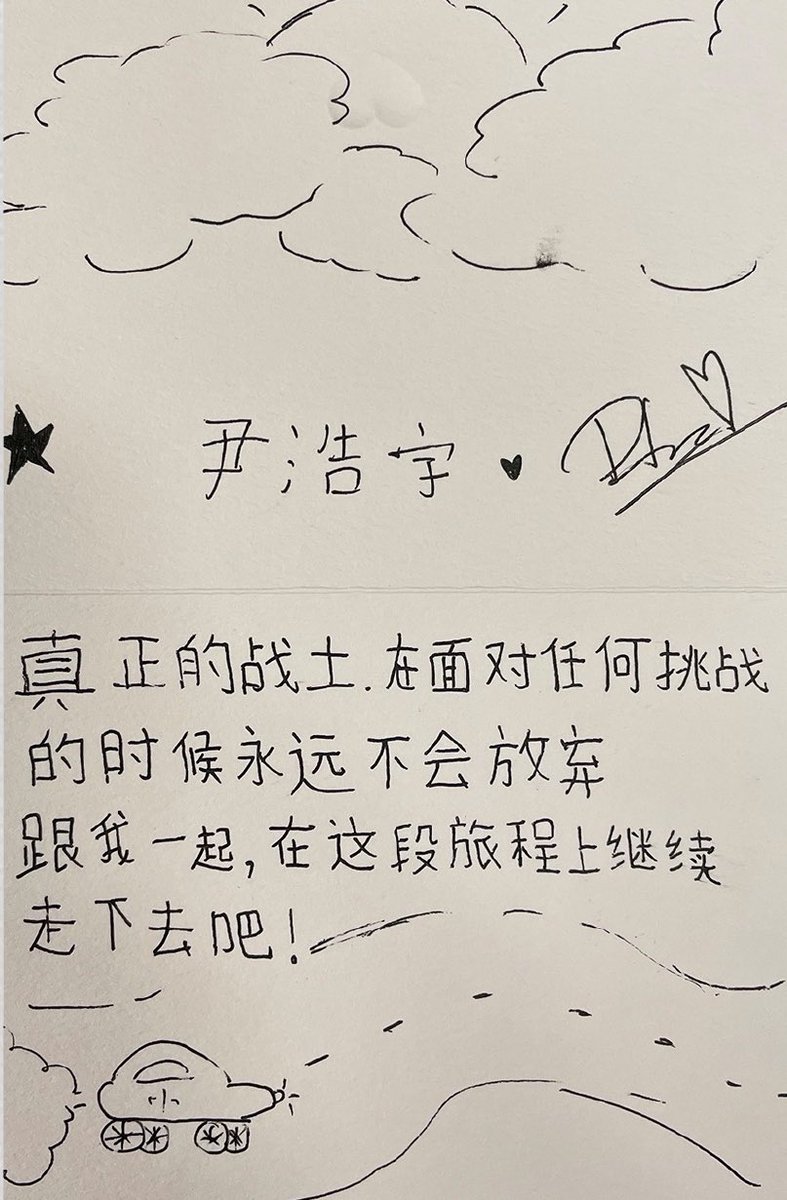 尹浩宇
真正的战士.在面对任何挑战
的时候永远不会放弃
跟我一起,在这段旅程上继续
走下去吧!
小